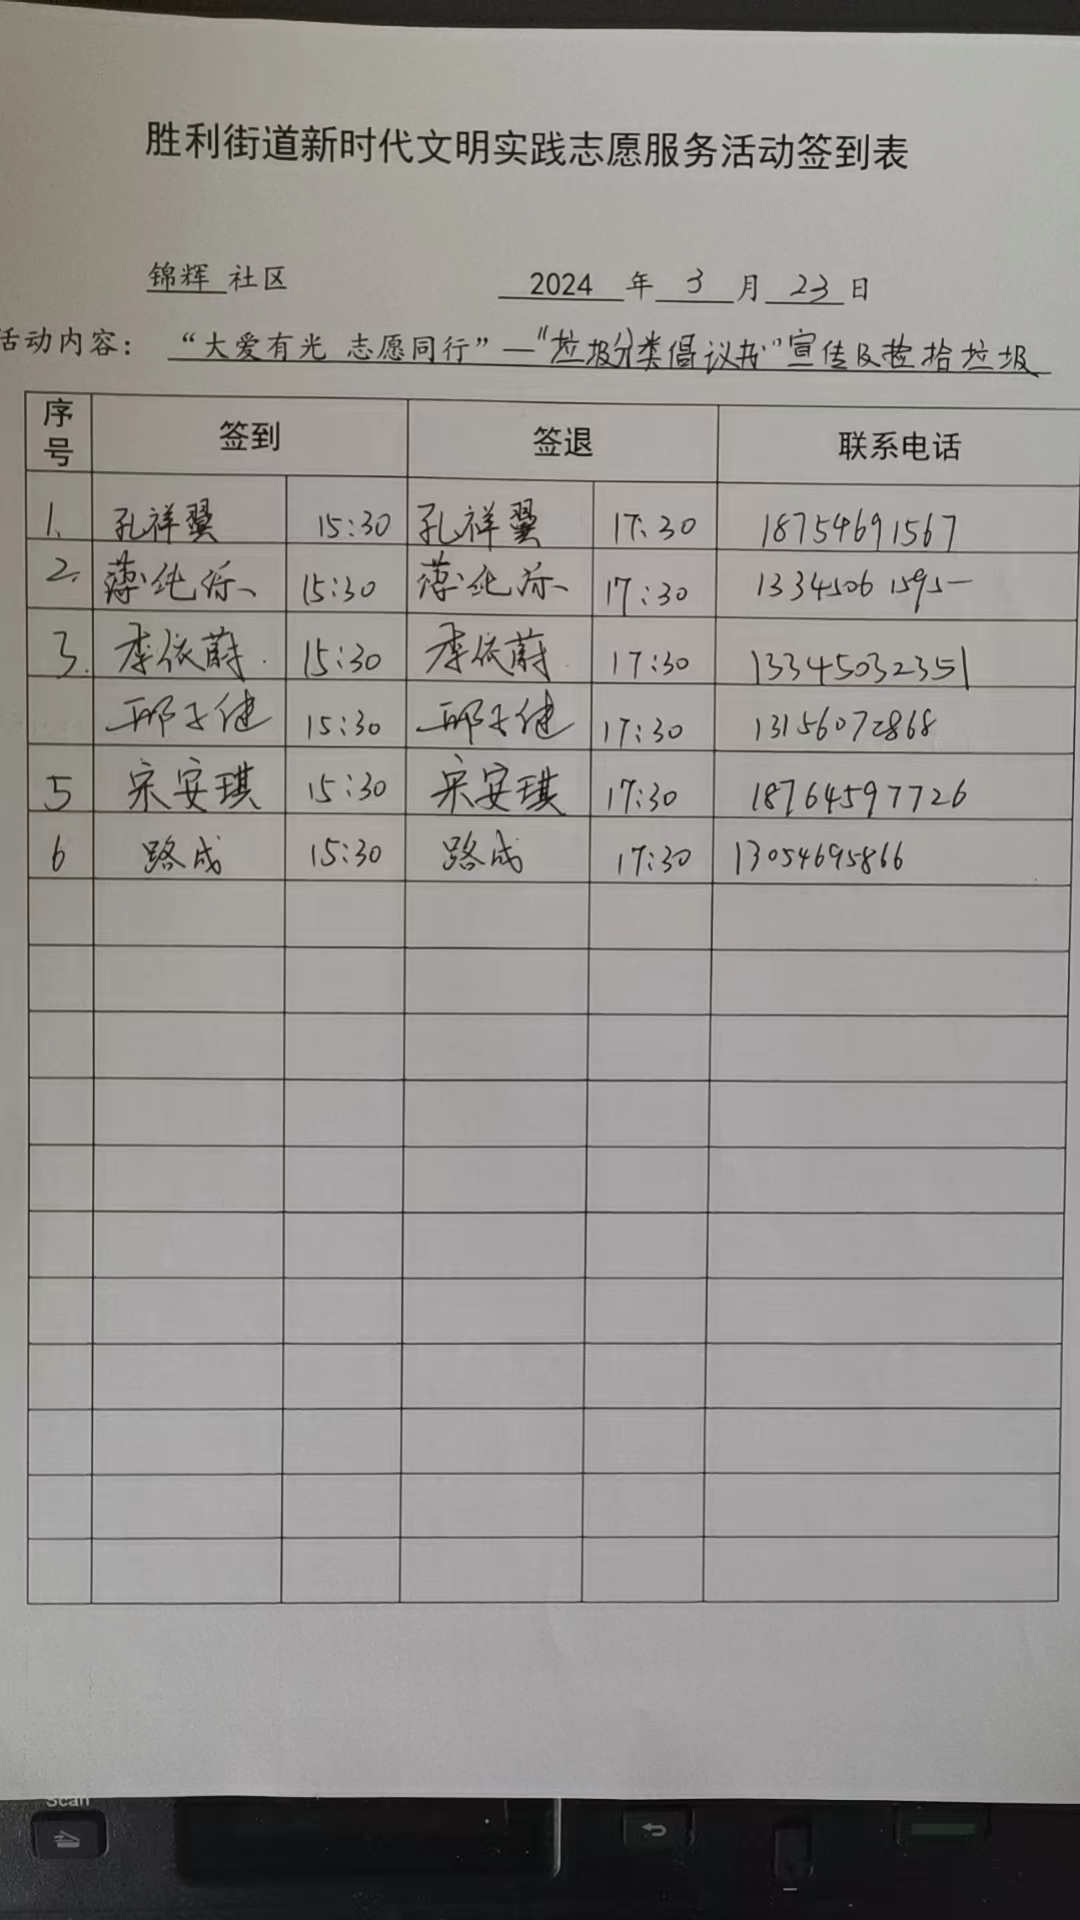 胜利街道新时代文明实践志愿服务活动签到表
锦辉 社区 2024 年 3 月 23 日
活动内容： “大爱有光 志愿同行”—“垃圾分类倡议书”宣传及捡拾垃圾
序号 签到 签退 联系电话
1、 孔祥翼 15:30 孔祥翼 17:30 18754691567
2、 薄纯 15:30 薄纯 17:30
3. 李依蔚 15:30 李依蔚 17:30 13345032351
邱子健 15:30 邱子健 17:30 13156072868
5 宋安琪 15:30 宋安琪 17:30 18764597726
6 路成 15:30 路成 17:30 13054695866
Scan